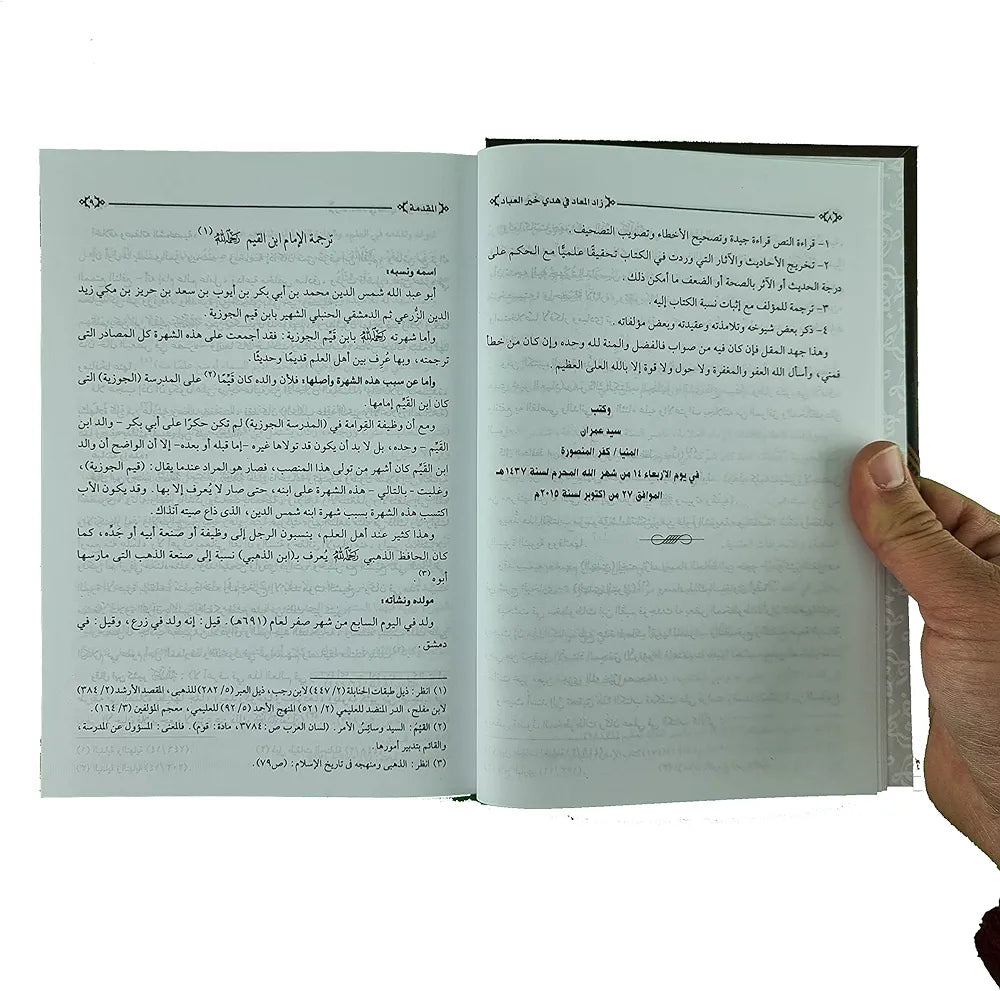 ٨ زاد المعاد في هدي خير العباد
١- قراءة النص قراءة جيدة وتصحيح الأخطاء وتصويب التصحيف .
٢- تخريج الأحاديث والآثار التي وردت في الكتاب تحقيقًا علميًّا مع الحكم على
درجة الحديث أو الأثر بالصحة أو الضعف ما أمكن ذلك .
٣- ترجمة للمؤلف مع إثبات نسبة الكتاب إليه .
٤- ذكر بعض شيوخه وتلامذته وعقيدته وبعض مؤلفاته .
وهذا جهد المقل فإن كان فيه من صواب فالفضل والمنة لله وحده وإن كان من خطأ
فمني، وأسأل الله العفو والمغفرة ولا حول ولا قوة إلا بالله العلى العظيم .
وكتب
سيد عمران
المنيا / كفر المنصورة
في يوم الاربعاء ١٤ من شهر الله المحرم لسنة ١٤٣٧هـ
الموافق ٢٧ من اكتوبر لسنة ٢٠١٥م
المقدمة ٩
ترجمة الإمام ابن القيم رَحِمَهُ اللَّهُ (١)
اسمه ونسبه:
أبو عبد الله شمس الدين محمد بن أبي بكر بن أيوب بن سعد بن حريز بن مكي زيد
الدين الزُّرعي ثم الدمشقي الحنبلي الشهير بابن قيم الجوزية .
وأما شهرته رَحِمَهُ اللَّهُ بابن قَيِّم الجوزية : فقد أجمعت على هذه الشهرة كل المصادر التى
ترجمته، وبها عُرِف بين أهل العلم قديمًا وحديثًا .
وأما عن سبب هذه الشهرة وأصلها: فلأن والده كان قَيِّمًا (٢) على المدرسة (الجوزية) التى
كان ابن القَيِّم إمامها .
ومع أن وظيفة القِوامة في (المدرسة الجوزية) لم تكن حكرًا على أبي بكر - والد ابن
القَيِّم - وحده، بل لا بد أن يكون قد تولاها غيره -إما قبله أو بعده- إلا أن الواضح أن والد
ابن القَيِّم كان أشهر من تولى هذا المنصب، فصار هو المراد عندما يقال : (قيم الجوزية)،
وغلبت - بالتالي - هذه الشهرة على ابنه، حتى صار لا يُعرف إلا بها . وقد يكون الأب
اكتسب هذه الشهرة بسبب شهرة ابنه شمس الدين، الذى ذاع صيته آنذاك .
وهذا كثير عند أهل العلم، ينسبون الرجل إلى وظيفة أو صنعة أبيه أو جَدِّه، كما
كان الحافظ الذهبي رَحِمَهُ اللَّهُ يُعرف بـ(ابن الذهبي) نسبة إلى صنعة الذهب التى مارسها
أبوه (٣) .
مولده ونشأته:
ولد في اليوم السابع من شهر صفر لعام (٦٩١هـ) . قيل : إنه ولد في زرع، وقيل : في
دمشق .
(١) انظر : ذيل طبقات الحنابلة (٢/ ٤٤٧) لابن رجب، ذيل العبر (٥/ ٢٨٢) للذهبى، المقصد الأرشد (٢/ ٣٨٤)
لابن مفلح، الدر المنضد للعليمي (٢/ ٥٢١) المنهج الأحمد (٥/ ٩٢) للعليمي، معجم المؤلفين (٣/ ١٦٤) .
(٢) القيِّم : السيد وسائِسُ الأمر . (لسان العرب ص: ٣٧٨٤، مادة : قوم) . فالمعنى : المسؤول عن المدرسة،
والقائم بتدبير أمورها .
(٣) انظر : الذهبى ومنهجه فى تاريخ الإسلام : (ص٧٩) .